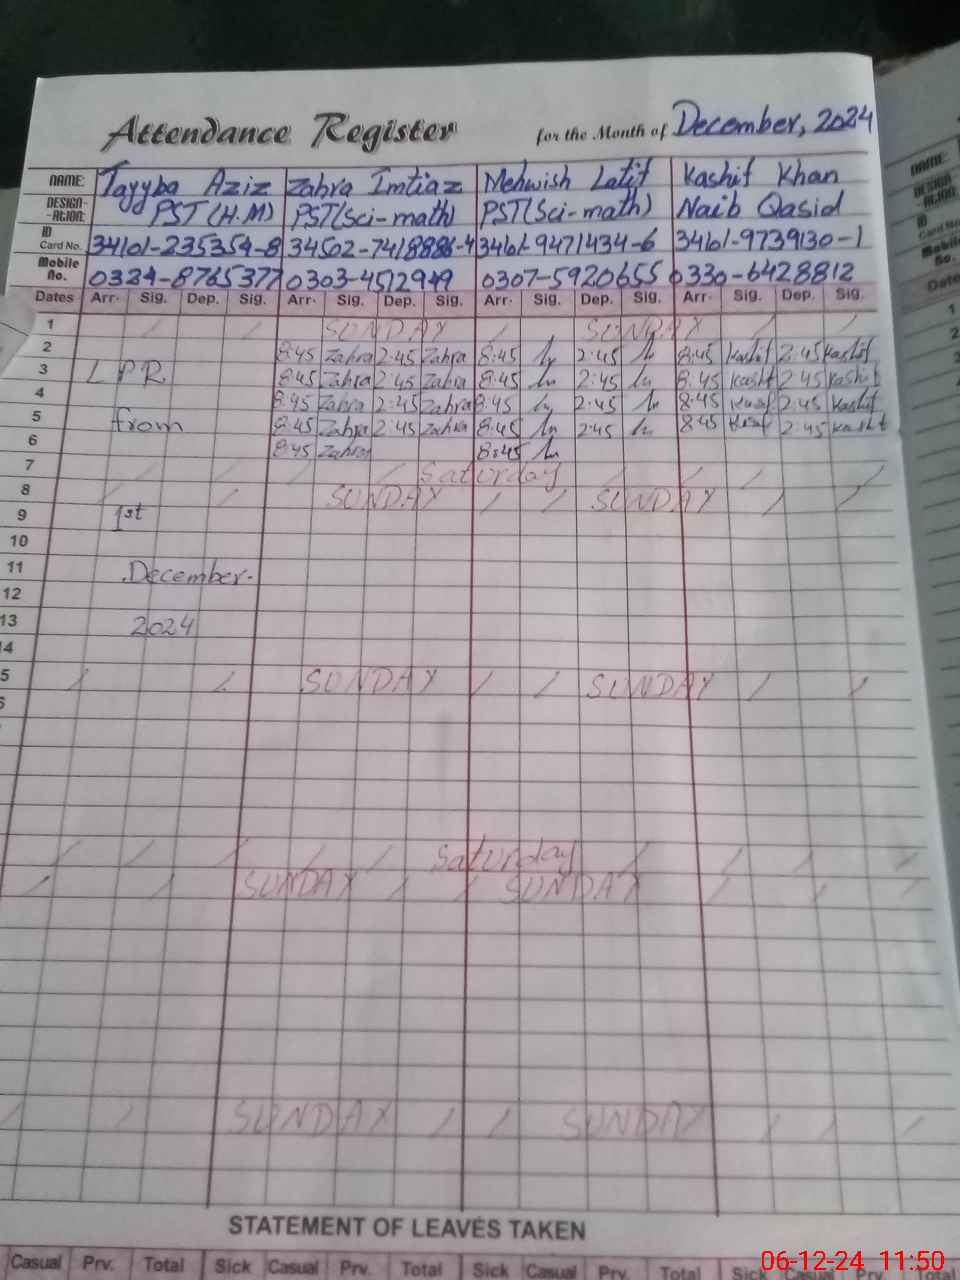 Attendance Register for the Month of December, 2024
NAME: Tayyba Aziz Zahra Imtiaz Mehwish Latif Kashif Khan
DESIGN-ATION: PST(H.M) PST(Sci-math) PST(Sci-math) Naib Qasid
ID Card No. 34101-235354-8 34502-7418886-4 34101-9471434-6 34101-9739130-1
Mobile No. 0324-8765377 0303-4512949 0307-5920655 0330-6428812
Dates Arr. Sig. Dep. Sig. Arr. Sig. Dep. Sig. Arr. Sig. Dep. Sig. Arr. Sig. Dep. Sig.
1 SUNDAY SUNDAY
2 8:45 Zahra 2:45 Zahra 8:45 2:45 8:45 Kashif 2:45 Kashif
3 LPR 8:45 Zahra 2:45 Zahra 8:45 2:45 8:45 Kashf 2:45 Kashif
4 8:45 Zahra 2:45 Zahra 8:45 2:45 8:45 2:45 Kashif
5 from 8:45 Zahra 2:45 Zahra 8:45 2:45 8:45 2:45 Kasht
6 8:45 Zahra 8:45
7 Saturday
8 SUNDAY SUNDAY
9 1st
10
11 December.
12
13 2024
14
5 SUNDAY SUNDAY
6
Saturday
SUNDAY SUNDAY
SUNDAY SUNDAY
STATEMENT OF LEAVES TAKEN
Casual Prv. Total Sick Casual Prv. Total Sick Casual Prv. Total Sick Casual Prv.
06-12-24 11:50
NAME:
DESIGN-ATION:
ID Card No.
Mobile No.
Date
1
2
3